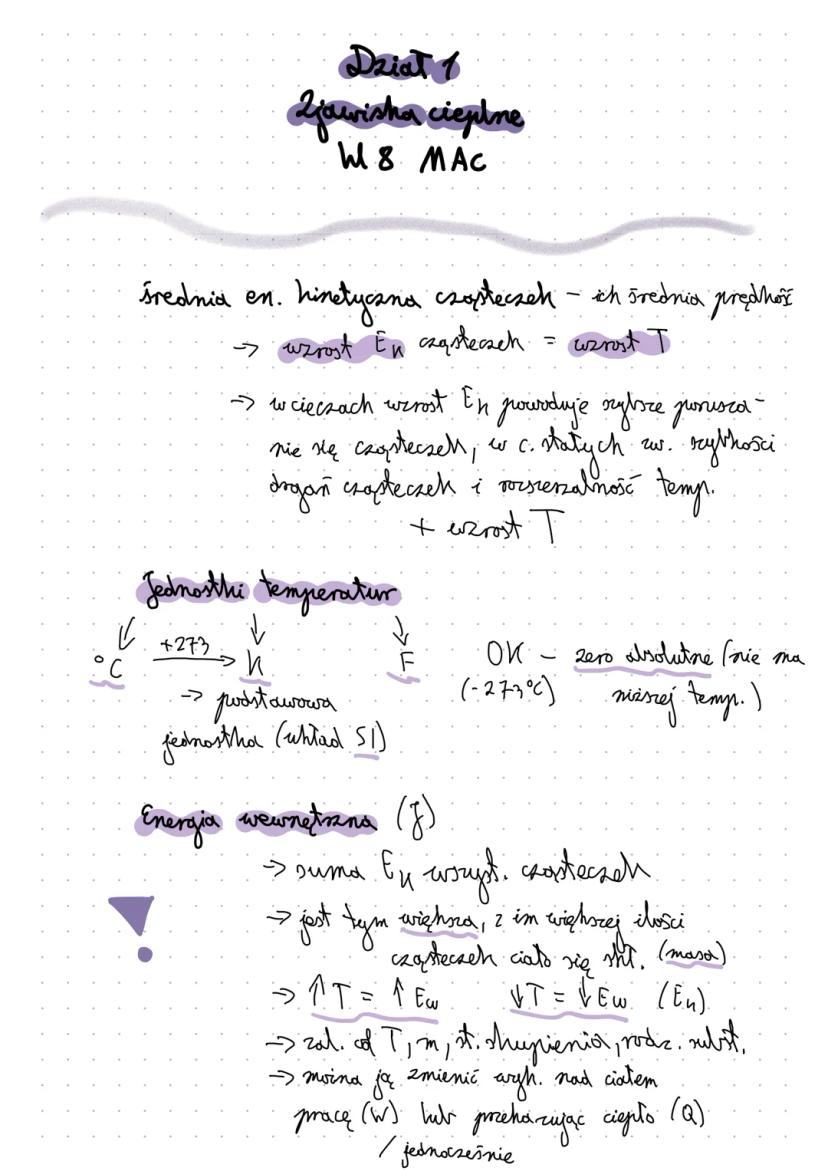 Dział 1
Zjawiska cieplne
W 8 MAC
średnia en. kinetyczna cząsteczek – ich średnia prędkość
→ wzrost Ek cząsteczek = wzrost T
→ w cieczach wzrost Ek powoduje szybsze porusza-
nie się cząsteczek, w c. stałych zw. szybkości
drgań cząsteczek i rozszerzalność temp.
+ wzrost T
Jednostki temperatur
°C +273 → K F
→ podstawowa
jednostka (układ SI)
0K – zero absolutne (nie ma
(-273°C) niższej temp.)
Energia wewnętrzna (J)
→ suma Ek wszyst. cząsteczek
!
→ jest tym większa, z im większej ilości
cząsteczek ciało się skł. (masa)
→ ↑T = ↑Ew ↓T = ↓Ew (Ek)
→ zal. od T, m, st. skupienia, rodz. subst.
→ można ją zmienić wyk. nad ciałem
pracę (W) lub przekazując ciepło (Q)
/ jednocześnie